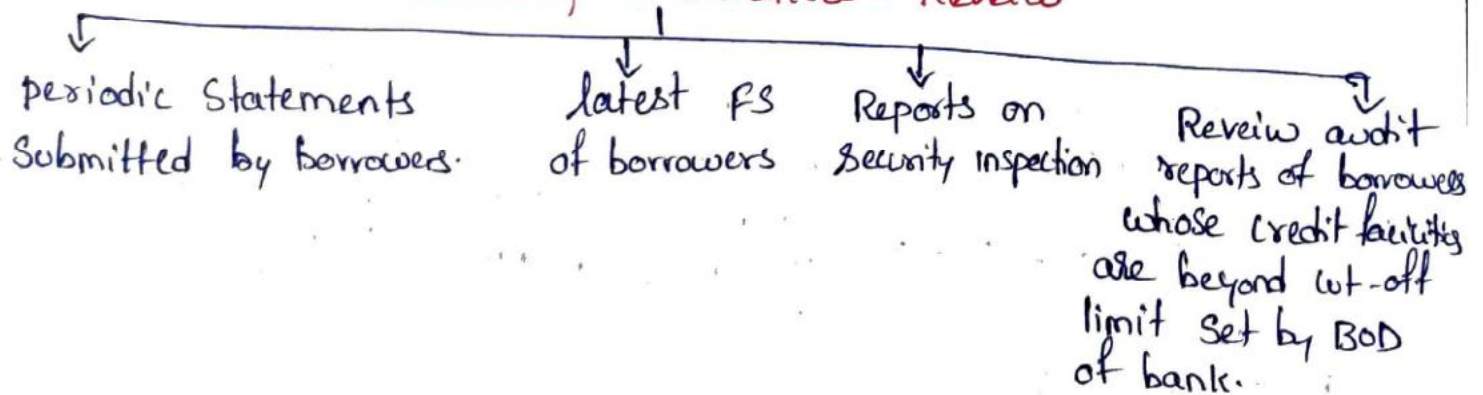 Review
periodic Statements
Submitted by borrowers.
latest FS
of borrowers
Reports on
Security inspection
Reveiw audit
reports of borrowers
whose credit facilities
are beyond cut-off
limit set by BOD
of bank.